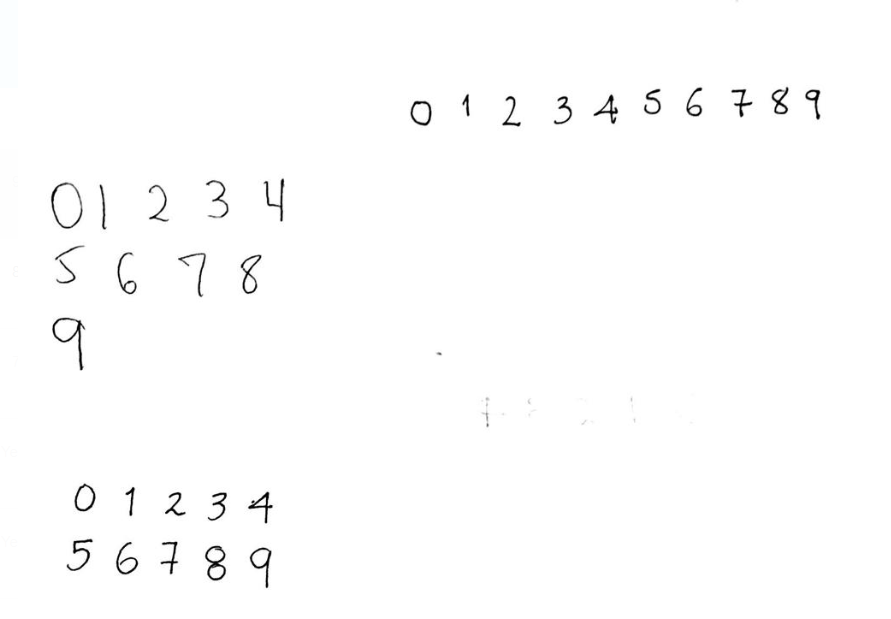 0 1 2 3 4 5 6 7 8 9
0 1 2 3 4
5 6 7 8
9
0 1 2 3 4
5 6 7 8 9